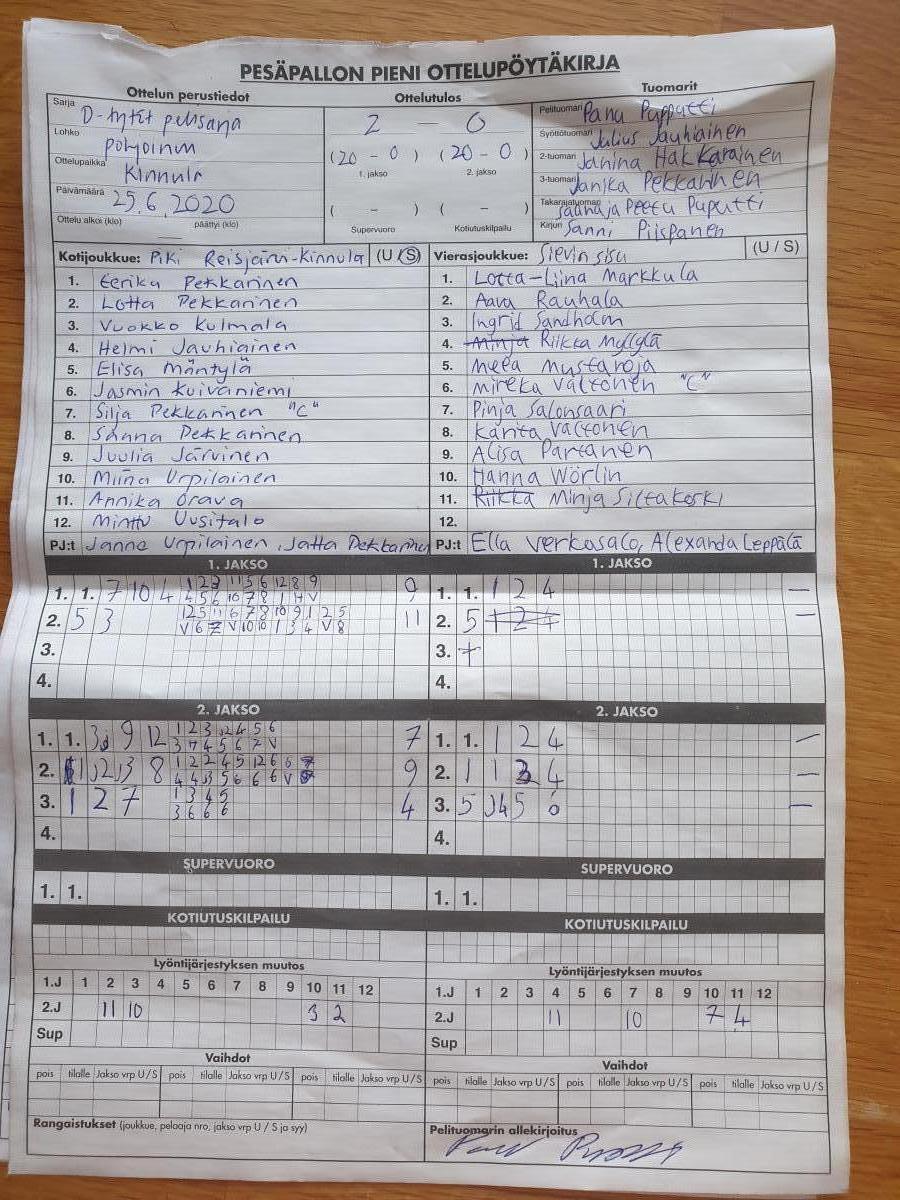 PESÄPALLON PIENI OTTELUPÖYTÄKIRJA
Ottelun perustiedot
Ottelutulos
Tuomarit
Sarja D-tytöt
Lohko pohjoinen
Ottelupaikka Kinnula
Päivämäärä 25.6.2020
Ottelu alkoi (klo) päättyi (klo)
2 0
(20 - 0) (20 - 0)
1. jakso 2. jakso
( - ) ( - )
Supervuoro Kotiutuskilpailu
Pelituomari Panu Puputti
Syöttötuomari Julius Jauhiainen
2-tuomari Janina Hakkarainen
3-tuomari Janika Pekkarinen
Takarajatuomari Peetu Puputti
Kirjuri Sanni Piispanen
Kotijoukkue: PiKi Reisjärvi-Kinnula (U/S)
1. Eerika Pekkarinen
2. Lotta Pekkarinen
3. Vuokko Kulmala
4. Helmi Jauhiainen
5. Elisa Mäntylä
6. Jasmin Kuivaniemi
7. Silja Pekkarinen "C"
8. Sanna Pekkarinen
9. Juulia Järvinen
10. Miina Urpilainen
11. Annika Orava
12. Minttu Uusitalo
PJ:t Janne Urpilainen, Jatta Pekkarinen
Vierasjoukkue: Sievin sisu (U / S)
1. Lotta-Liina Markkula
2. Aava Rauhala
3. Ingrid Sandholm
4. Minja Riikka Myllylä
5. Meea Mustaroja
6. Mireka Valtonen "C"
7. Pinja Salonsaari
8. Karita Valtonen
9. Alisa Partanen
10. Hanna Wörlin
11. Riikka Minja Siltakoski
12.
PJ:t Ella Verkasalo, Alexanda Leppälä
1. JAKSO
1. 1. 7 10 4 9
2. 5 3 11
3.
4.
1. JAKSO
1. 1. 1 2 4 –
2. 5 1 2 4 –
3. +
4.
2. JAKSO
1. 1. 3 9 12 7
2. 8 9
3. 1 2 7 4
4.
2. JAKSO
1. 1. 1 2 4 –
2. 1 1 3 4 –
3. 5 –
4.
SUPERVUORO
1. 1.
SUPERVUORO
1. 1.
KOTIUTUSKILPAILU
KOTIUTUSKILPAILU
Lyöntijärjestyksen muutos
1.J 1 2 3 4 5 6 7 8 9 10 11 12
2.J 11 10 3 2
Sup
Lyöntijärjestyksen muutos
1.J 1 2 3 4 5 6 7 8 9 10 11 12
2.J 11 10 7 4
Sup
Vaihdot
pois tilalle Jakso vrp U / S pois tilalle Jakso vrp U / S pois tilalle Jakso vrp U / S
Vaihdot
pois tilalle Jakso vrp U / S pois tilalle Jakso vrp U / S pois tilalle Jakso vrp U / S
Rangaistukset (joukkue, pelaaja nro, jakso vrp U / S ja syy)
Pelituomarin allekirjoitus